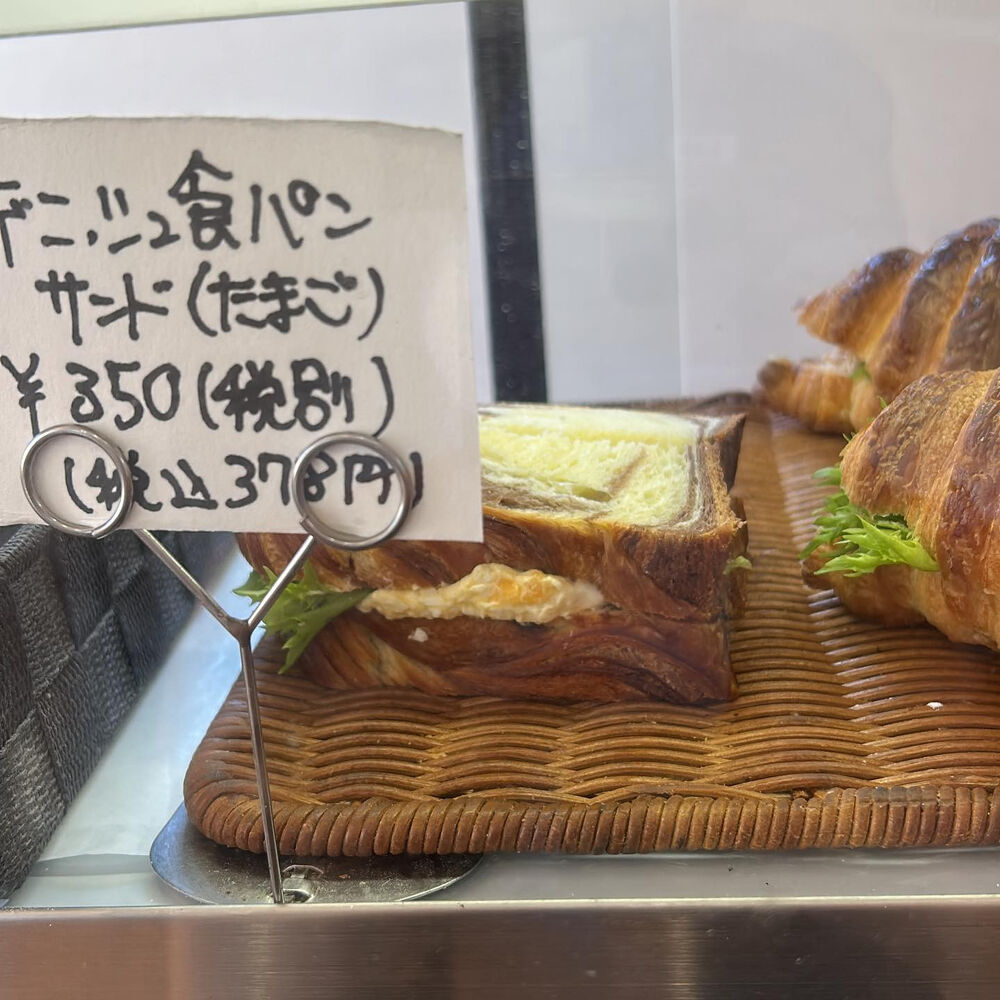 デニッシュ食パン
サンド(たまご)
¥350(税別)
(税込378円)